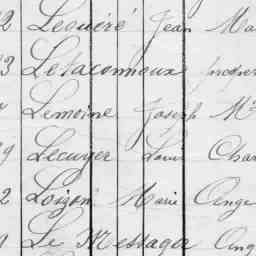 2 Lequéré Jean Ma
3 Letaconnoux
Lemoine Joseph M
9 Lecuyer Louis Char
2 Loizon Marie Ange
Le Messager Ang